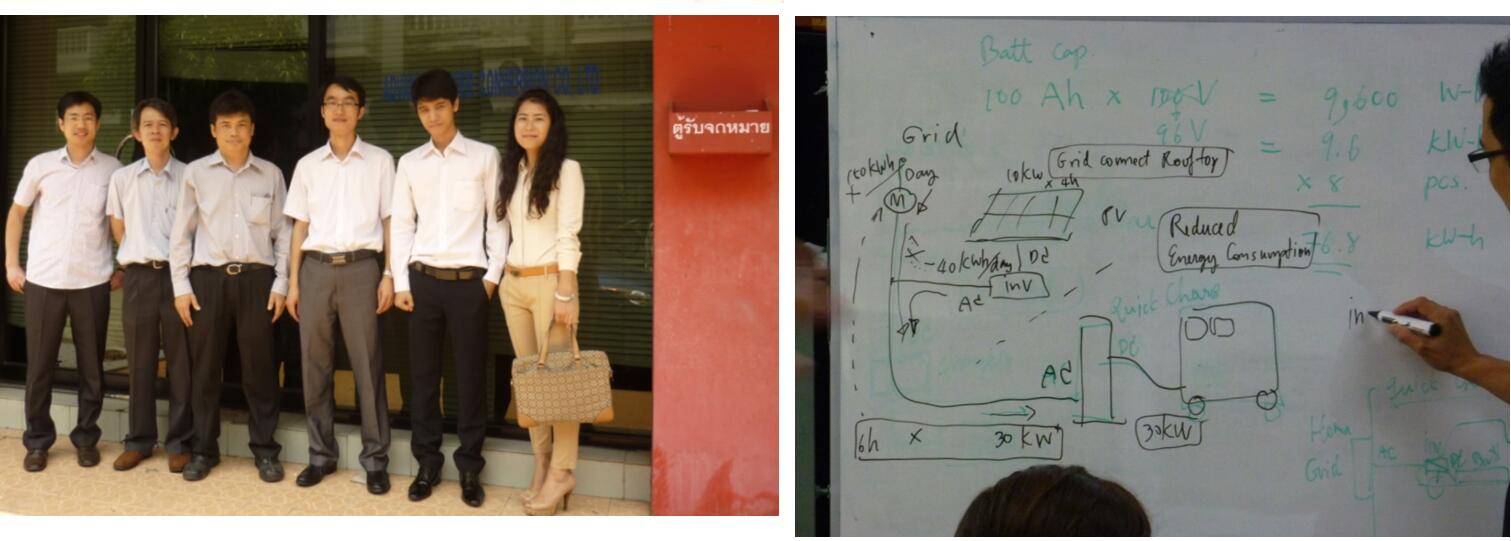 CONVERSION CO.,LTD
ตู้รับจดหมาย
Batt cap.
100 Ah x 100V = 9,600 W-h
96V = 9.6 kW-h
x 8 pcs.
76.8 kW-h
Grid
Day
10kW x 4h
Grid connect Rooftop
M
PV
Reduced
Energy Consumption
-40kWh/day
DC
inv
AC
Quick Charg
DC
AC
in
6h x 30 kW
30kW
Quick
Home
Grid
AC
inv
DC Batt